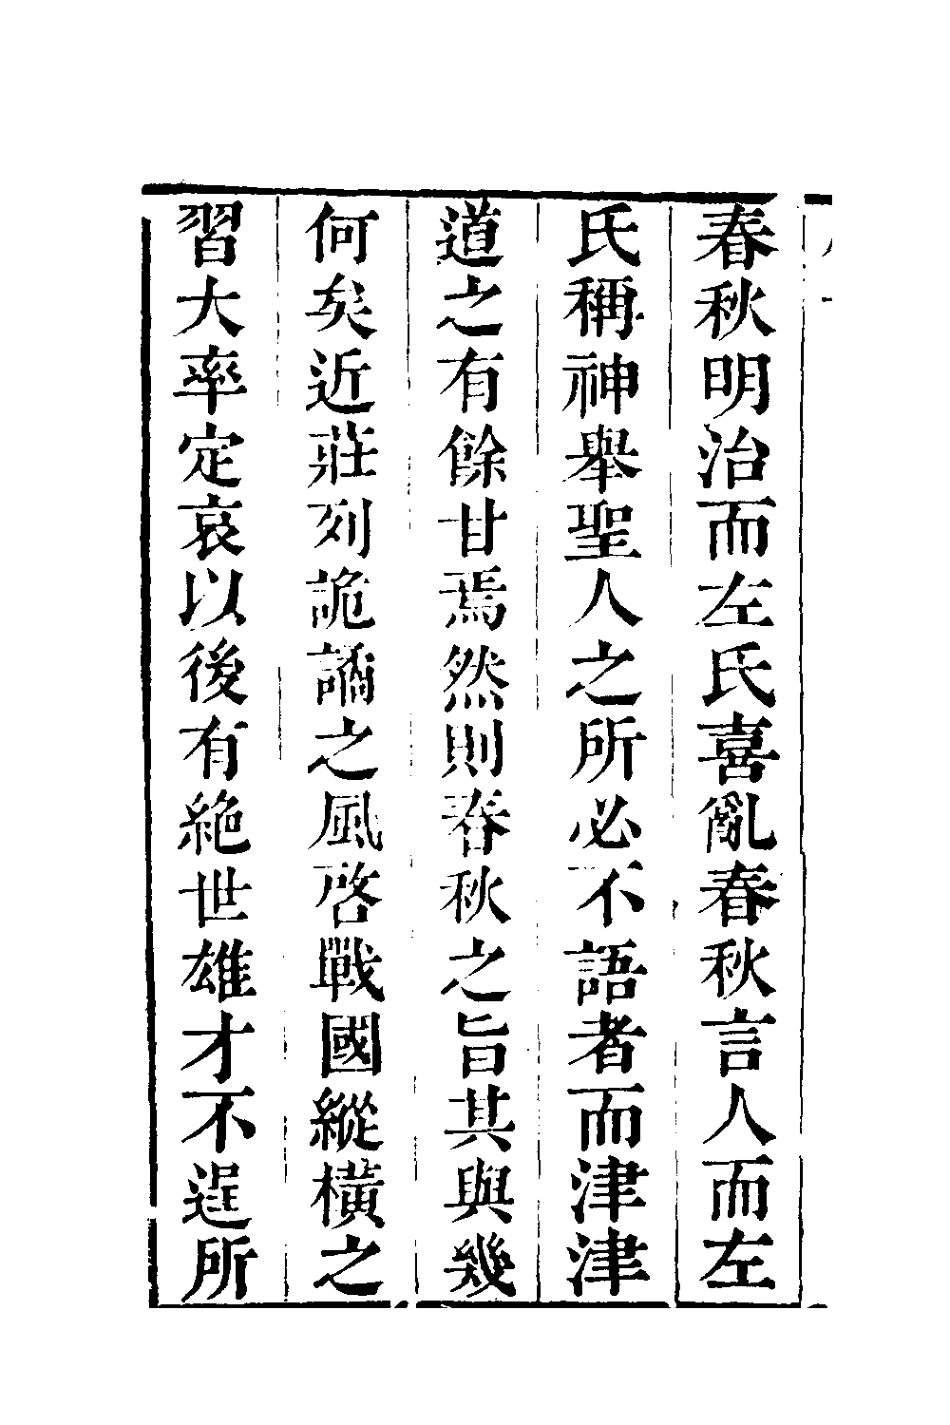 春秋明治而左氏喜亂春秋言人而左
氏稱神舉聖人之所必不語者而津津
道之有餘甘焉然則春秋之旨其與幾
何矣近莊列詭譎之風啓戰國縱橫之
習大率定哀以後有絶世雄才不逞所